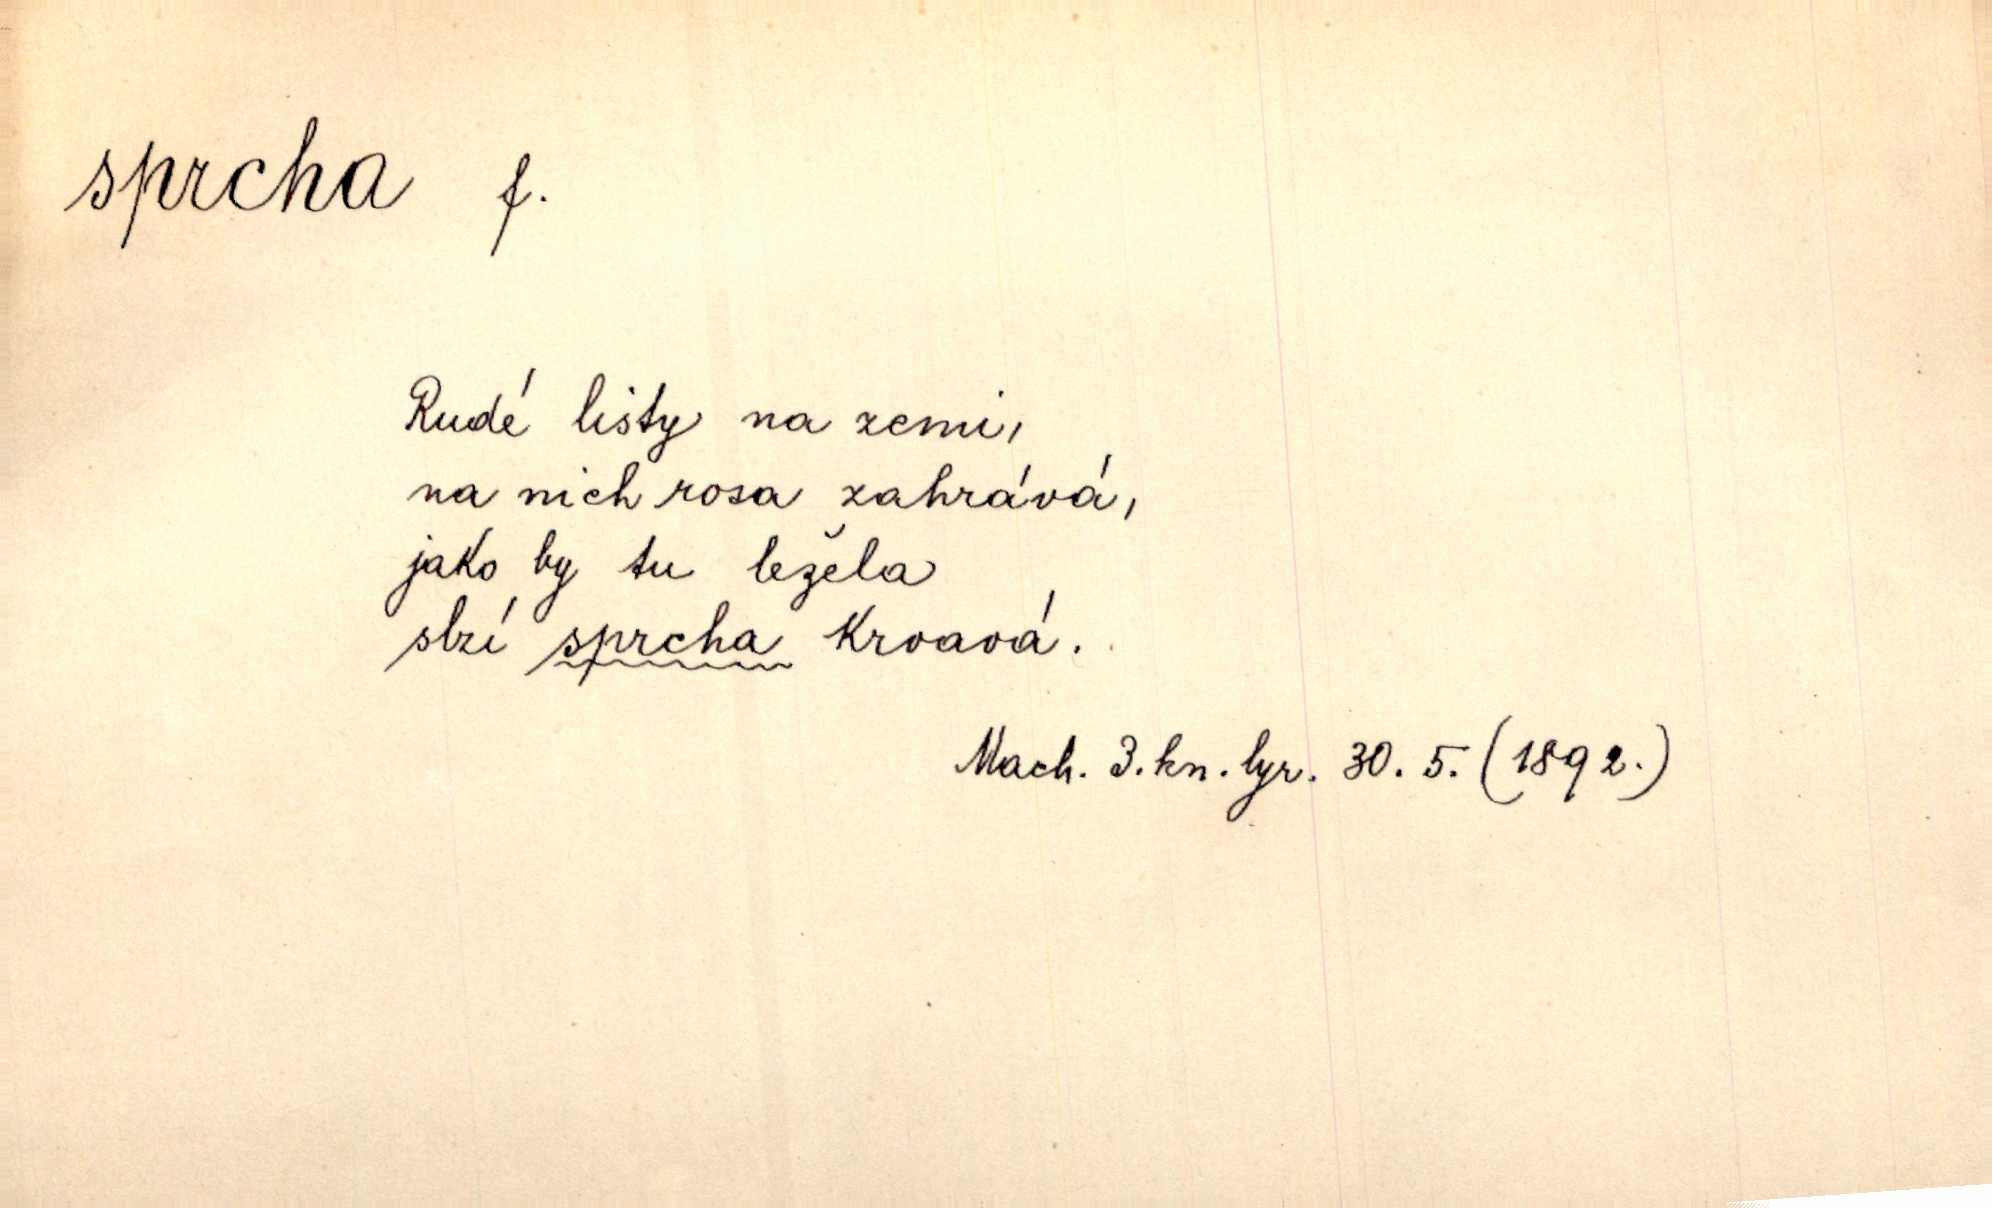 sprcha f.
Rudé listy na zemi,
na nich rosa zahrává,
jako by tu ležela
slzí sprcha krvavá.
Mach. 3. kn. lyr. 30. 5. (1892.)